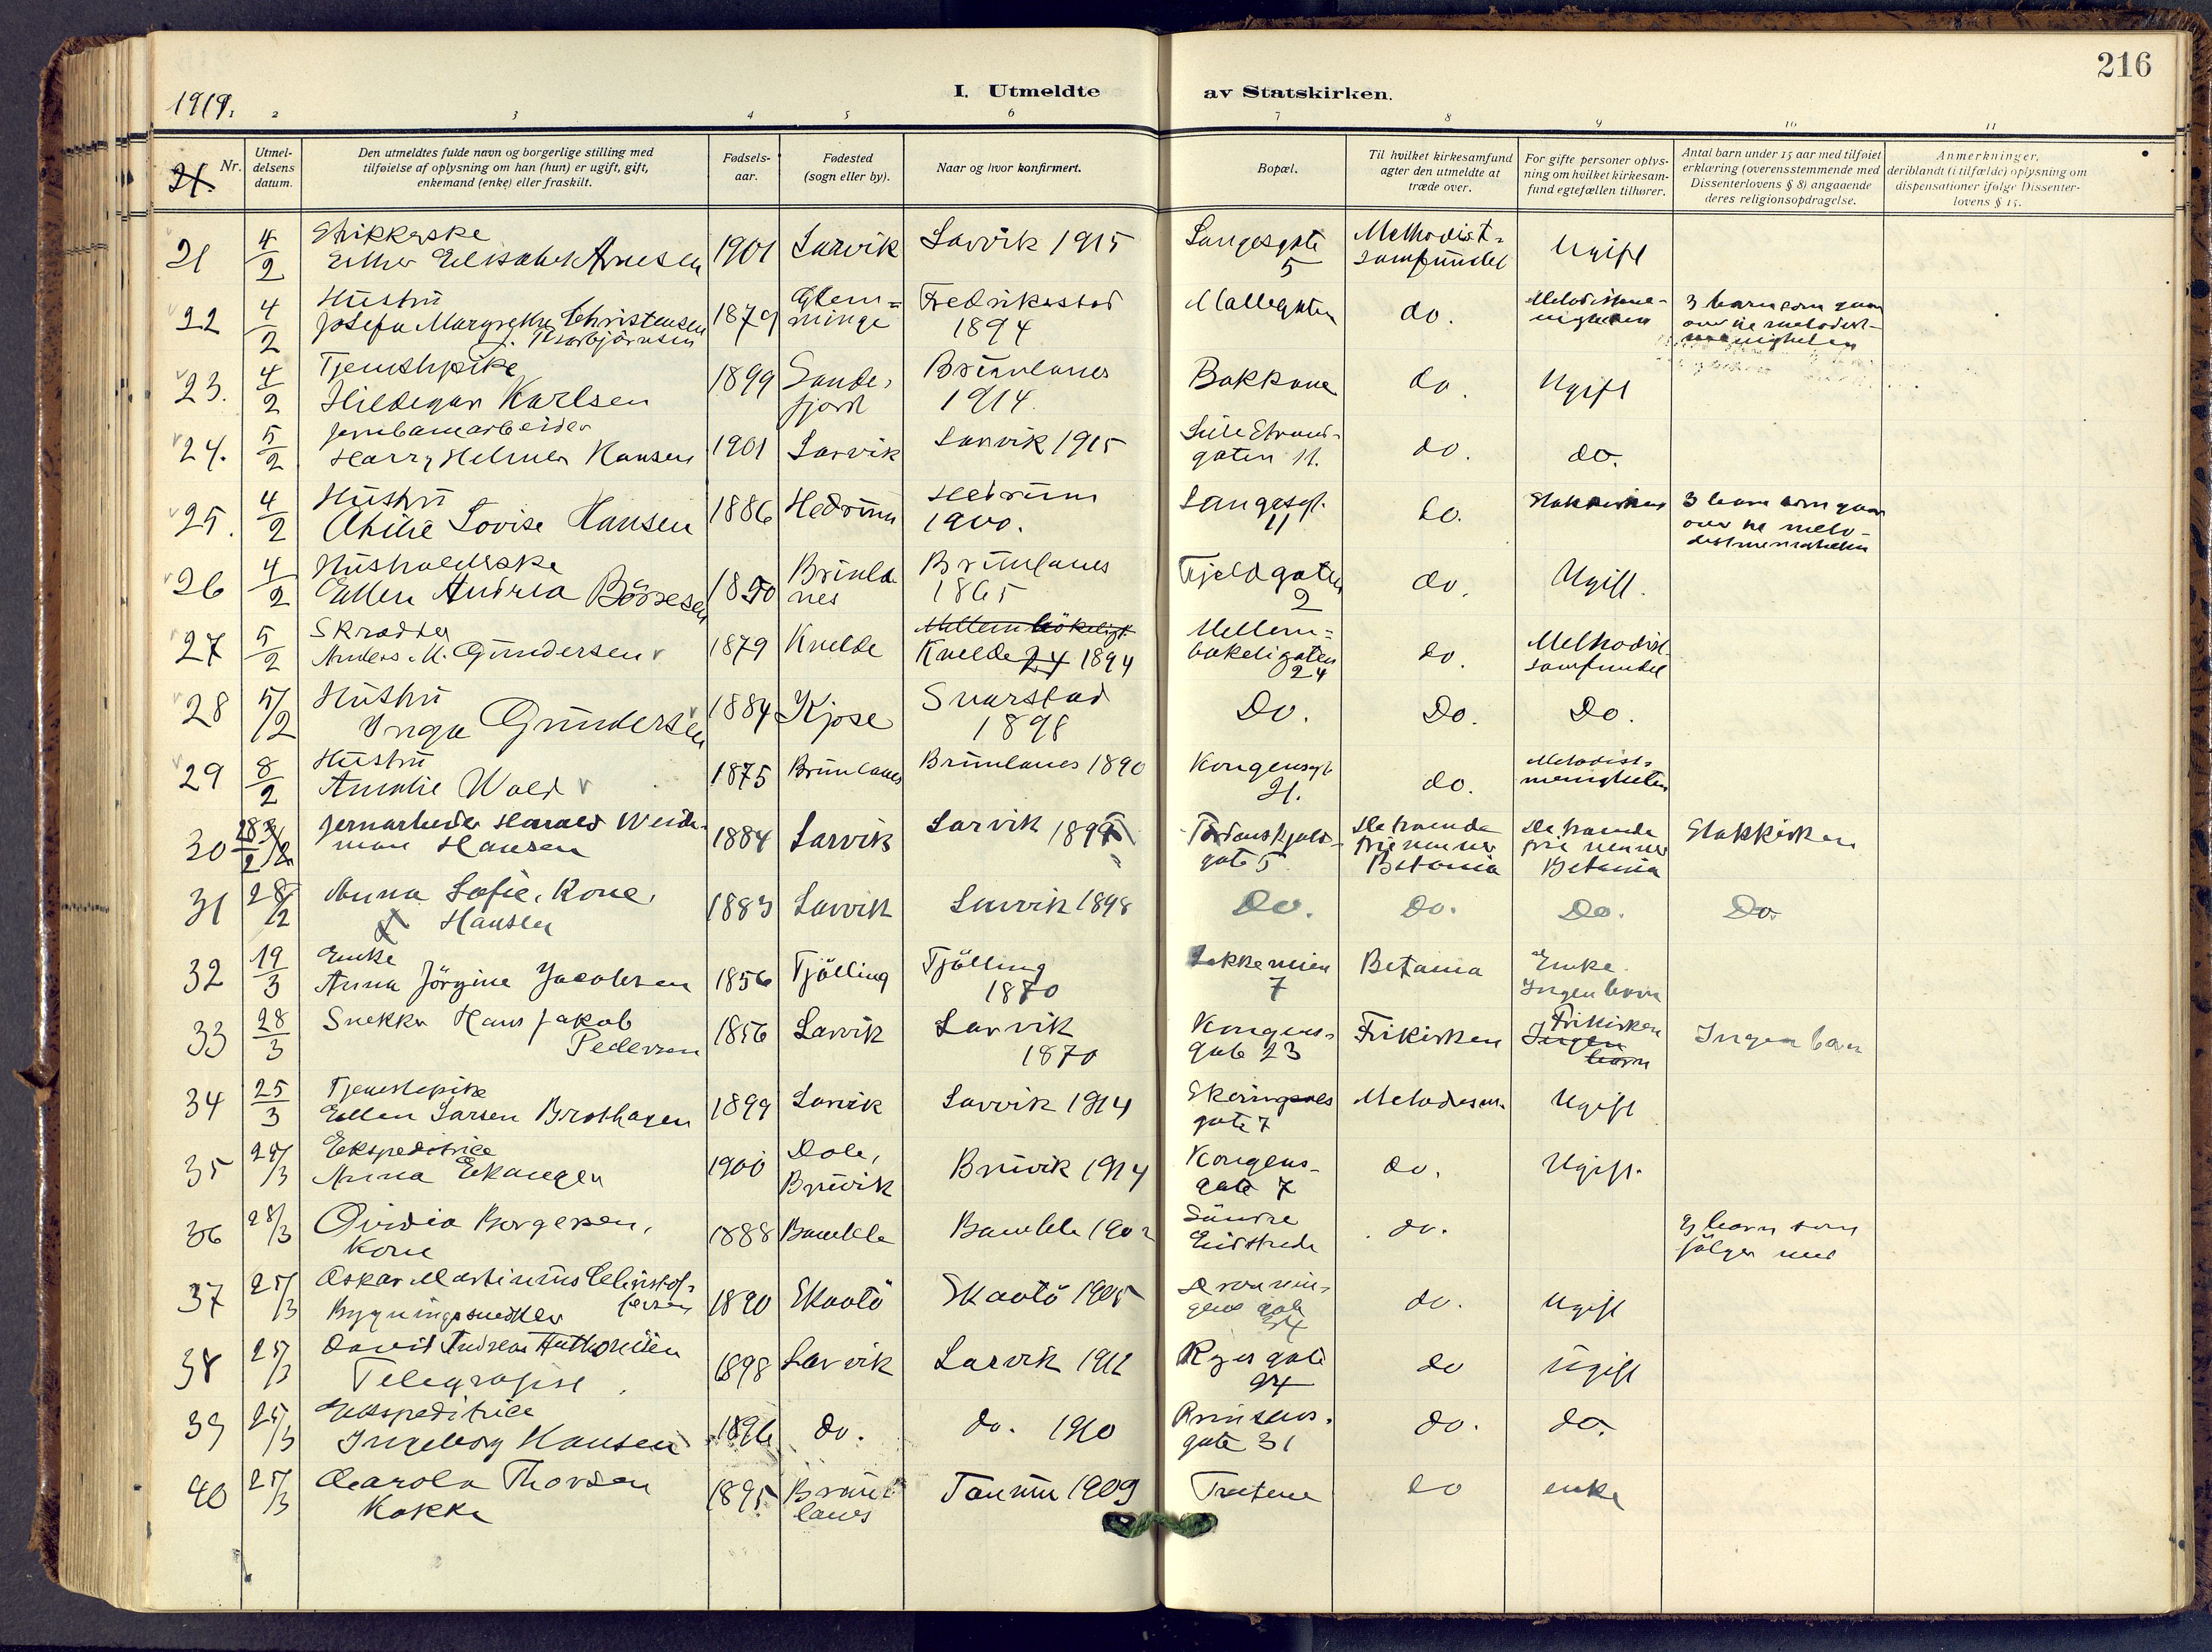 216
I. Utmeldte av Statskirken.
1919.
2 3 4 5 6 7 8 9 10 11
21. Nr.
Utmel-
delsens
datum.
Den utmeldtes fulde navn og borgerlige stilling med
tilføielse af oplysning om han (hun) er ugift, gift,
enkemand (enke) eller fraskilt.
Fødsels-
aar.
Fødested
(sogn eller by).
Naar og hvor konfirmert.
Bopæl.
Til hvilket kirkesamfund
agter den utmeldte at
træde over.
For gifte personer oplys-
ning om hvilket kirkesam-
fund egtefællen tilhører.
Antal barn under 15 aar med tilføiet
erklæring (overensstemmende med
Dissenterlovens § 8) angaaende
deres religionsopdragelse.
Anmerkninger,
deriblandt (i tilfælde) oplysning om
dispensationer ifølge Dissenter-
lovens § 15.
21 4/2 Strikkerske
Esther Elisabeth Arnesen 1901 Larvik Larvik 1915 Langesgate
5 Methodist-
samfundet Ugift
22 4/2 Hustru
Josefa Margrethe Christensen
f. Thorbjörnsen 1879 Glem=
minge Fredrikstad
1894 Møllegaten do. Metodistme-
nigheten 3 barn som gaar
over til metodist-
menigheten
23. 4/2 Tjenestepike
Hildegar Karlsen 1899 Sande-
fjord Brunlanes
1914. Bakkane do. Ugift
24. 5/2 Jernbanearbeider
Harry Helmer Hansen 1901 Larvik Larvik 1915 Lille Strand-
gaten 11. do. do.
25. 4/2 Hustru
Othilie Lovise Hansen 1886 Hedrum Hedrum
1900. Langesgt.
11 do. Statskirken 3 barn som gaar
over til meto-
distmenigheten
26 4/2 Husholderske
Ellen Andrea Börresen 1850 Brunla
nes Brunlanes
1865 Fjeldgaten
2 do. Ugift.
27 5/2 Skrædder
Anders M. Gundersen 1879 Kvelde Mellembökeligt.
Kvelde 24 1894 Mellem=
bökeligaten
24 do. Methodist-
samfundet
28 5/2 Hustru
Inga Gundersen 1884 Kjose Svarstad
1898 Do. Do. Do.
29 8/2 Hustru
Amalie Wold 1875 Brunlanes Brunlanes 1890 Kongensgt
21. do. Metodist-
menigheten
30 28/2 Jernarbeider Harald Weide-
man Hansen 1884 Larvik Larvik 1899 Tordenskjolds-
gate 5 De troende
frie venner
Betania De troende
frie venner
Betania Statskirken
31 28/2 Anna Sofie, Kone,
Hansen 1883 Larvik Larvik 1898 Do. Do. Do. Do.
32 19/3 Enke
Anna Jörgine Jacobsen 1856 Tjölling Tjölling
1870 Løkkeveien
7 Betania Enke.
Ingen barn
33 28/3 Snekker Hans Jakob
Pedersen 1856 Larvik Larvik
1870 Kongens-
gate 23 Frikirken Frikirken
Ingen
barn Ingen barn
34 25/3 Tjenestepike
Ellen Larsen Brothagen 1899 Larvik Larvik 1914 Skeringsals
gate 7 Metodistm. Ugift
35 25/3 Ekspeditrice
Anna Eikangen 1900 Dole,
Brevik Brevik 1914 Kongens-
gate 7 do. Ugift.
36 28/3 Ovidia Borgersen,
Kone 1888 Bamble Bamble 1902 Söndre
Eidstrede do. 2 barn som
fölger med
37 25/3 Oskar Martinius Christof-
fersen
Bygningssnekker 1890 Skaatö Skaatö 1905 Dronnin-
gens gate
34 do. Ugift
38 25/3 David Andreas Anthonisen
Telegrafist 1898 Larvik Larvik 1912 Ryes gate
24 do Ugift
39 25/3 Ekspeditrice
Ingeborg Hansen 1896 do. do. 1910 Prinsens-
gate 31 do. do.
40 25/3 Carola Thorsen
Kokke 1895 Brun-
lanes Tanum 1909 Tretene do enke